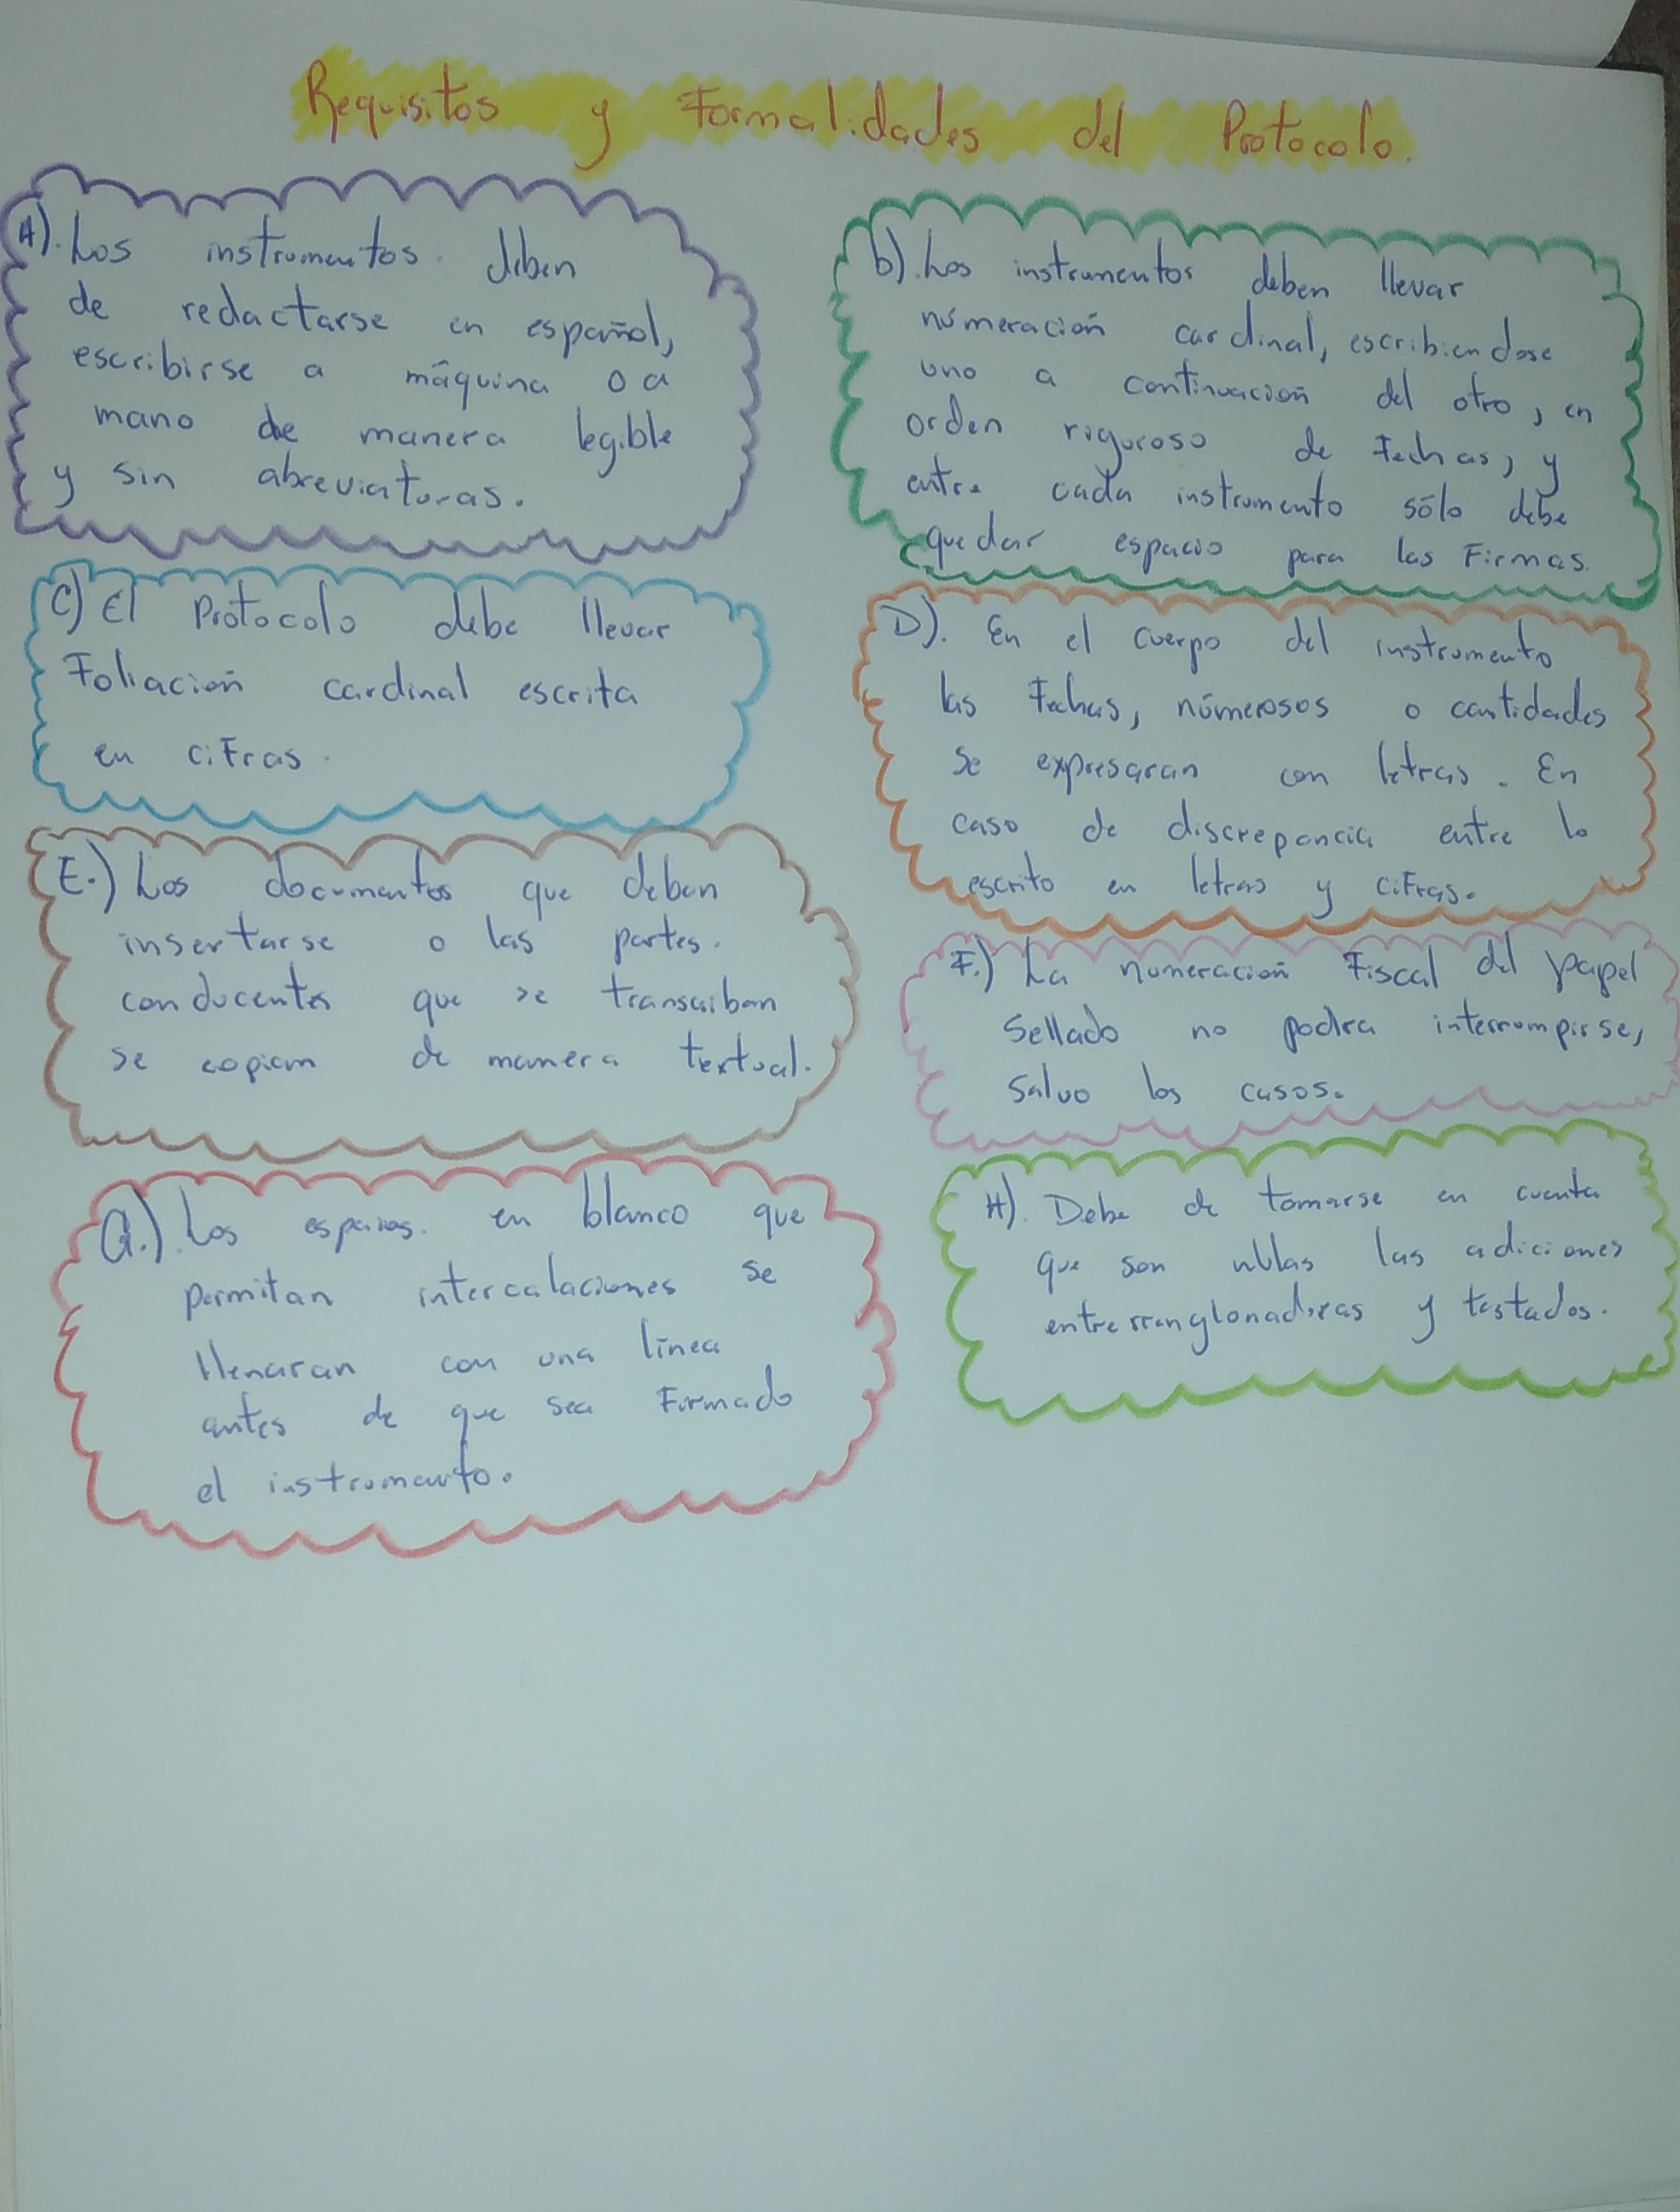 Requisitos y Formalidades del Protocolo.
A). Los instrumentos. deben
de redactarse en español,
escribirse a máquina o a
mano de manera legible
y sin abreviaturas.
b). Los instrumentos deben llevar
númeración cardinal, escribiendose
uno a continuación del otro, en
orden riguroso de Fechas, y
entre cada instrumento sólo debe
quedar espacio para las Firmas.
C) El Protocolo debe llevar
Foliación cardinal escrita
en ciFras.
D). En el cuerpo del instrumento
las Fechas, númerosos o cantidades
se expresaran con letras. En
caso de discrepancia entre lo
escrito en letras y ciFras.
E.) Los documentos que deban
insertarse o las partes.
conducentes que se transcriban
se copian de manera textual.
F.) La numeración Fiscal del papel
Sellado no podra interrumpirse,
Salvo los casos.
G.). Los espacios. en blanco que
permitan intercalaciones se
llenaran con una línea
antes de que sea Firmado
el instrumento.
H). Debe de tomarse en cuenta
que son nulas las adiciones
entrerrenglonaduras y testados.